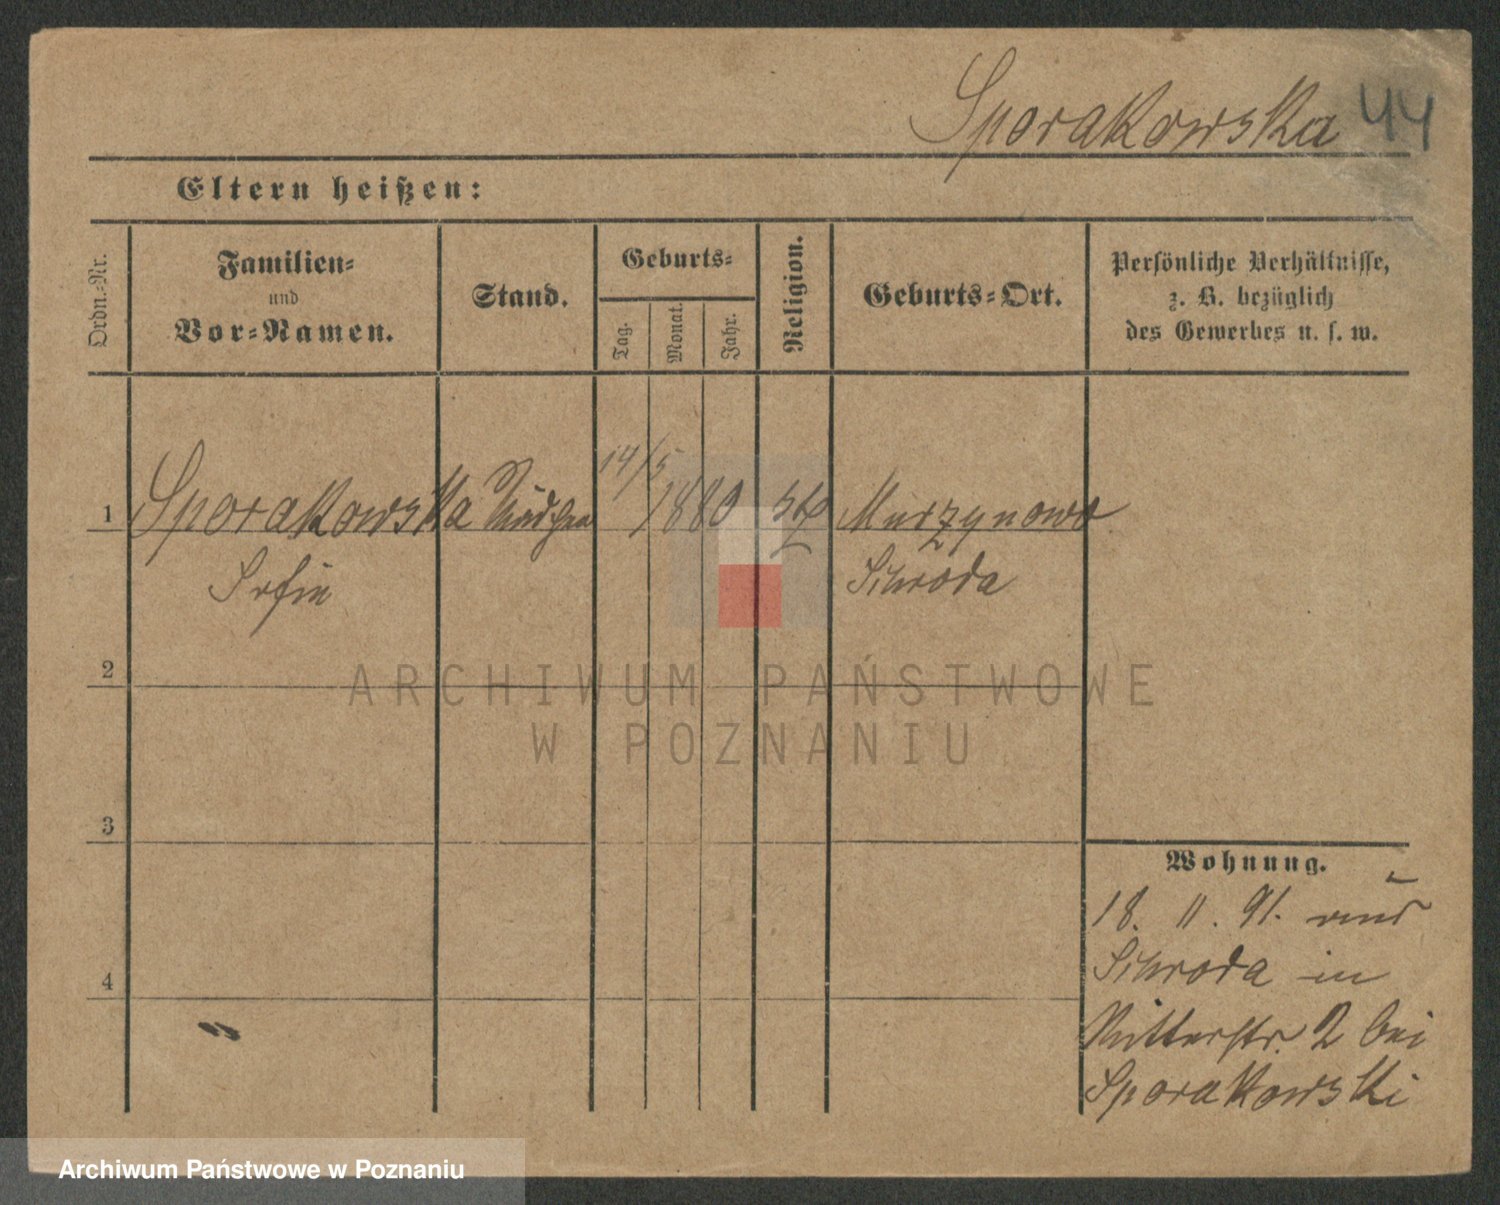 Sporakowska 44
Eltern heißen:
Ordn.-Nr.
Familien-
und
Vor-Namen.
Stand.
Geburts-
Tag.
Monat.
Jahr.
Religion.
Geburts-Ort.
Persönliche Verhältnisse,
z. B. bezüglich
des Gewerbes u. s. w.
1 Sporakowska Mädchen 14/5 1880 kth Murzynowo
Schroda
2
ARCHIWUM PAŃSTWOWE
W POZNANIU
3
Wohnung.
18. 11. 91. aus
Schroda in
4
Ritterstr. 2 bei
Sporakowski
Archiwum Państwowe w Poznaniu